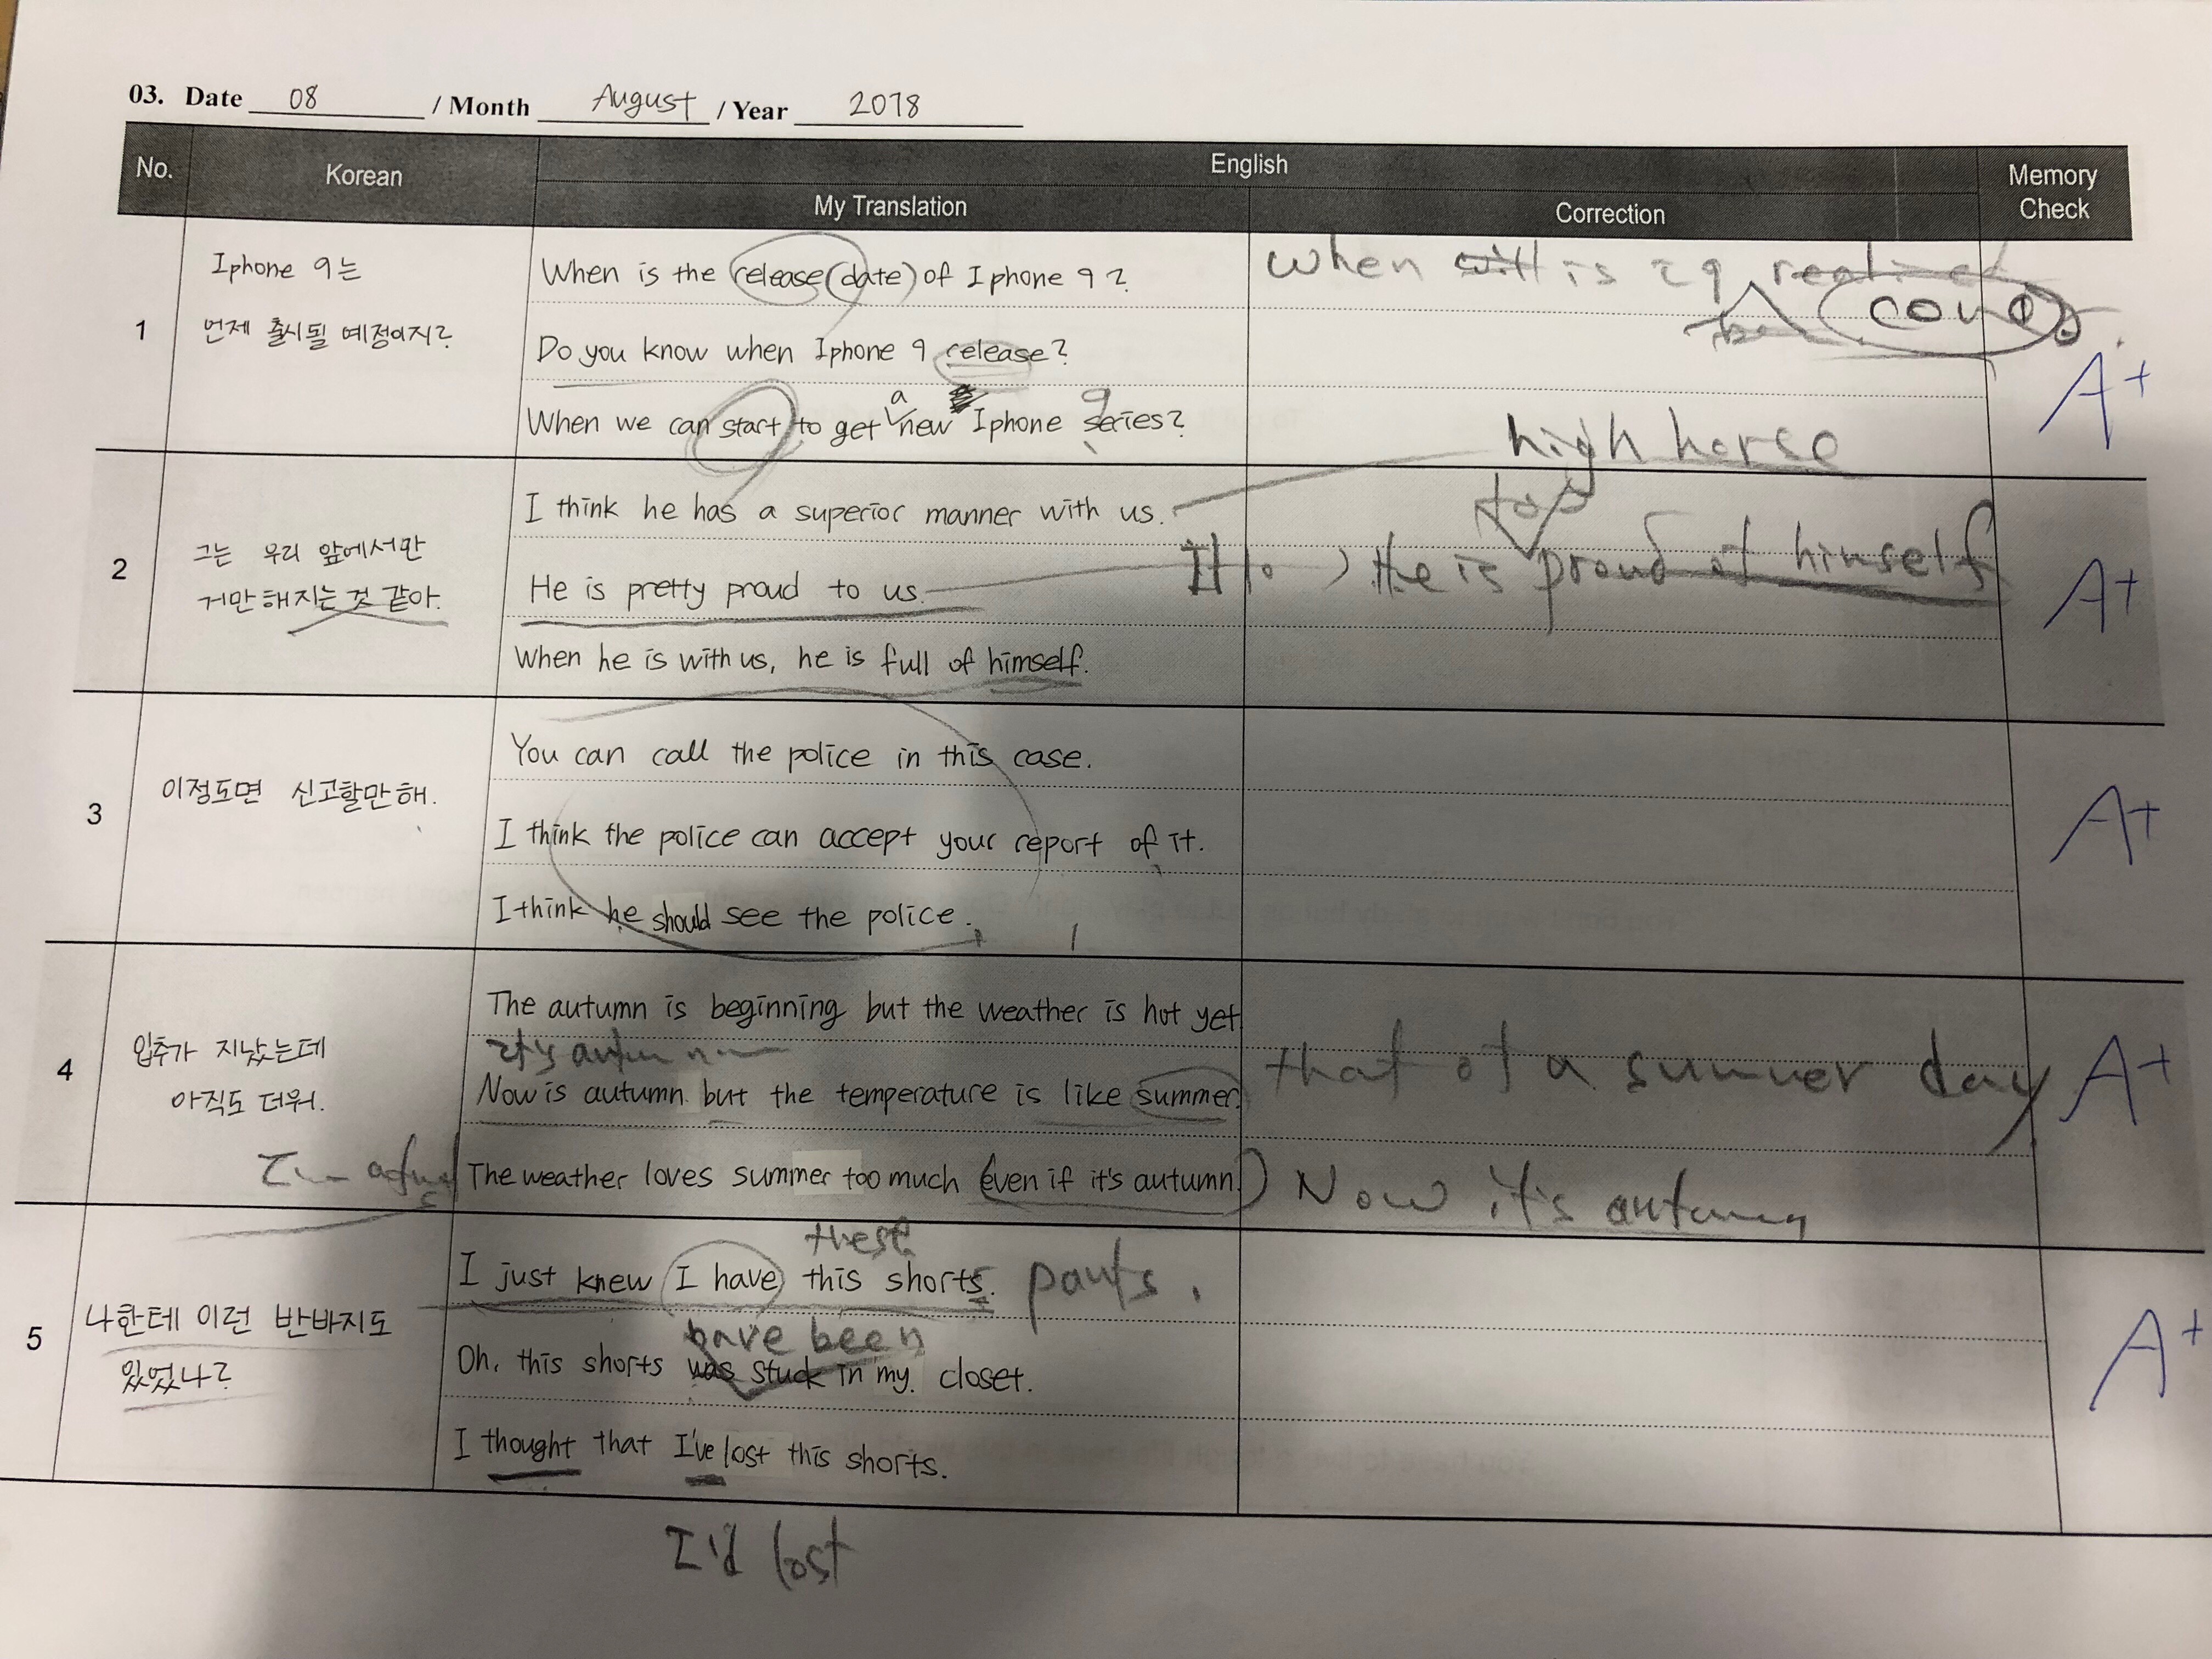 03. Date 08 / Month August / Year 2018
No. Korean English Memory Check
My Translation Correction
1
Iphone 9는
언제 출시될 예정이지?
When is the release (date) of Iphone 9?
When will is i9
come
Do you know when Iphone 9 release?
a 9
When we can start to get new Iphone series?
A+
high horse
2
그는 우리 앞에서만
거만해지는 것 같아.
I think he has a superior manner with us.
too
He is pretty proud to us.
He is proud of himself
When he is with us, he is full of himself.
A+
3
이정도면 신고할만해.
You can call the police in this case.
I think the police can accept your report of it.
I think he should see the police.
A+
4
입추가 지났는데
아직도 더워.
The autumn is beginning but the weather is hot yet
it's autumn
Now is autumn but the temperature is like summer.
that of a summer day
The weather loves summer too much (even if it's autumn.)
Now it's autumn
A+
5
나한테 이런 반바지도
있었나?
these
I just knew I have this shorts. pants.
have been
Oh, this shorts was stuck in my closet.
I thought that I've lost this shorts.
A+
I'd lost